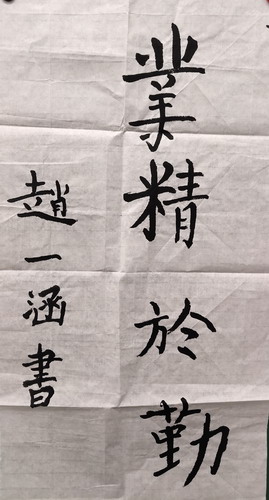 業精於勤
趙一涵書